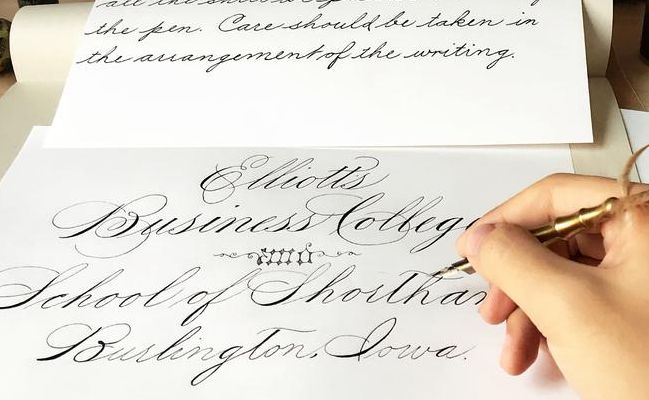 all the
the pen. Care should be taken in
the arrangement of the writing.
Elliotts
Business College
and
School of Shorthan
Burlington, Iowa.